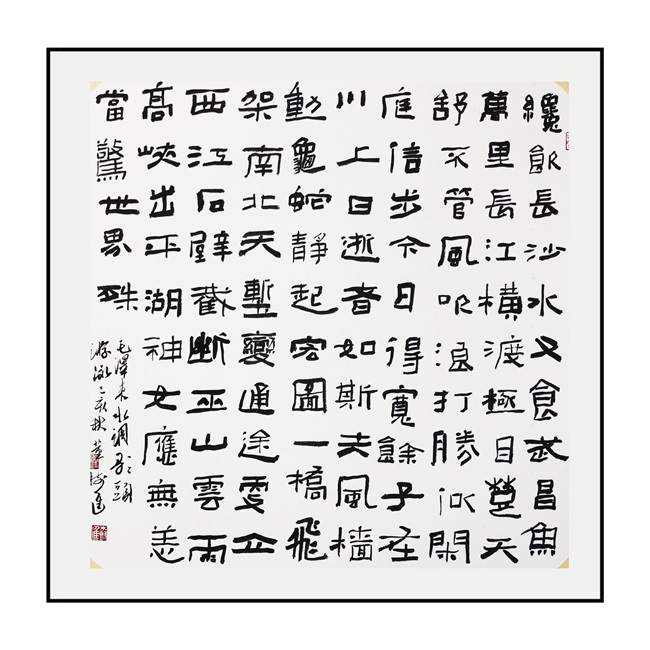 纔飲長沙水又食武昌魚
萬里長江橫渡極目楚天
舒不管風吹浪打勝似閑
庭信步今日得寬餘子在
川上曰逝者如斯夫風檣
動龜蛇靜起宏圖一橋飛
架南北天塹變通途更立
西江石壁截斷巫山雲雨
高峽出平湖神女應無恙
當驚世界殊
毛澤東水調歌頭
游泳